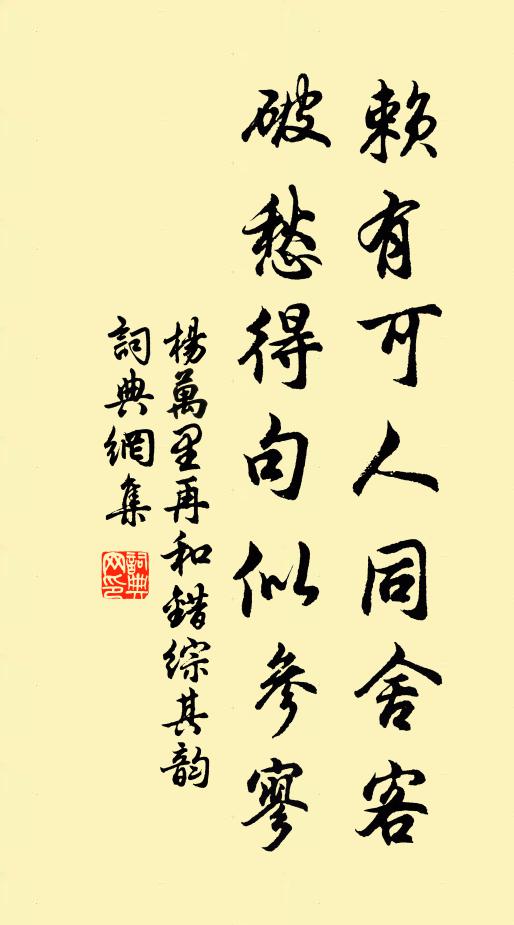 賴有可人同舍客
破愁得句似參寥
楊萬里再和錯綜其韵
詞典網集
詞典网印